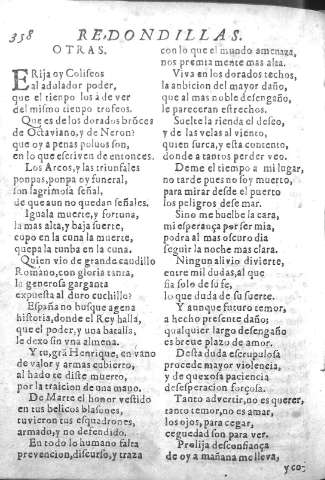 358 REDONDILLAS.
OTRAS.
ERija oy Coliseos
al adulador poder,
que el tiempo los à de ver
del mismo tienpo trofeos.
Que es de los dorados brõces
de Octaviano, y de Neron?
que oy a penas poluos son,
en lo que escriven de entonces.
Los Arcos, y las triunfales
ponpas, ponpa oy funeral,
son lagrimosa señal,
de que aun no quedan señales.
Iguala muerte, y fortuna,
la mas alta, y baja suerte,
cupo en la cuna la muerte,
quepa la tunba en la cuna.
Quien vio de grande caudillo
Romano, con gloria tanta,
la generosa garganta
expuesta al duro cuchillo?
España no busque agena
historia, donde el Rey halla,
que el poder, y una batalla,
le dexo sin vna almena.
Y tu, grã Henrique, en vano
de valor y armas cubierto,
al hado te diste muerto,
por la traicion de una mano.
De Marte el honor vestido
en tus belicos blasones,
tuvieron tus esquadrones,
armado, y no defendido.
En todo lo humano falta
prevencion, discurso, y traza
con lo que el mundo amenaza,
nos premia mente mas alta.
Viva en los dorados techos,
la anbicion del mayor daño,
que al mas noble desengaño,
le pareceran estrechos.
Suelte la rienda el deseo,
y de las velas al viento,
quien surca, y esta contento,
donde a tantos perder veo.
Deme el tiempo a mi lugar,
no tarde pues no soy muerto,
para mirar desde el puerto
los peligros dese mar.
Sino me huelbe la cara,
mi esperança por ser mia,
podra al mas oscuro dia
seguir la noche mas clara.
Ningun alivio divierte,
entre mil dudas, al que
fia solo de su fe,
lo que duda de su suerte.
Y aunque futuro temor,
a hecho presente daño;
qualquier largo desengaño
es breve plazo de amor.
Desta duda escrupulosa
procede mayor violencia,
y de quexosa paciencia
desesperacion forçosa.
Tanto advertir, no es querer,
tanto temor, no es amar,
los ojos, para cegar,
ceguedad son para ver.
Prolija desconfiança
de oy a mañana me lleva,
y co-